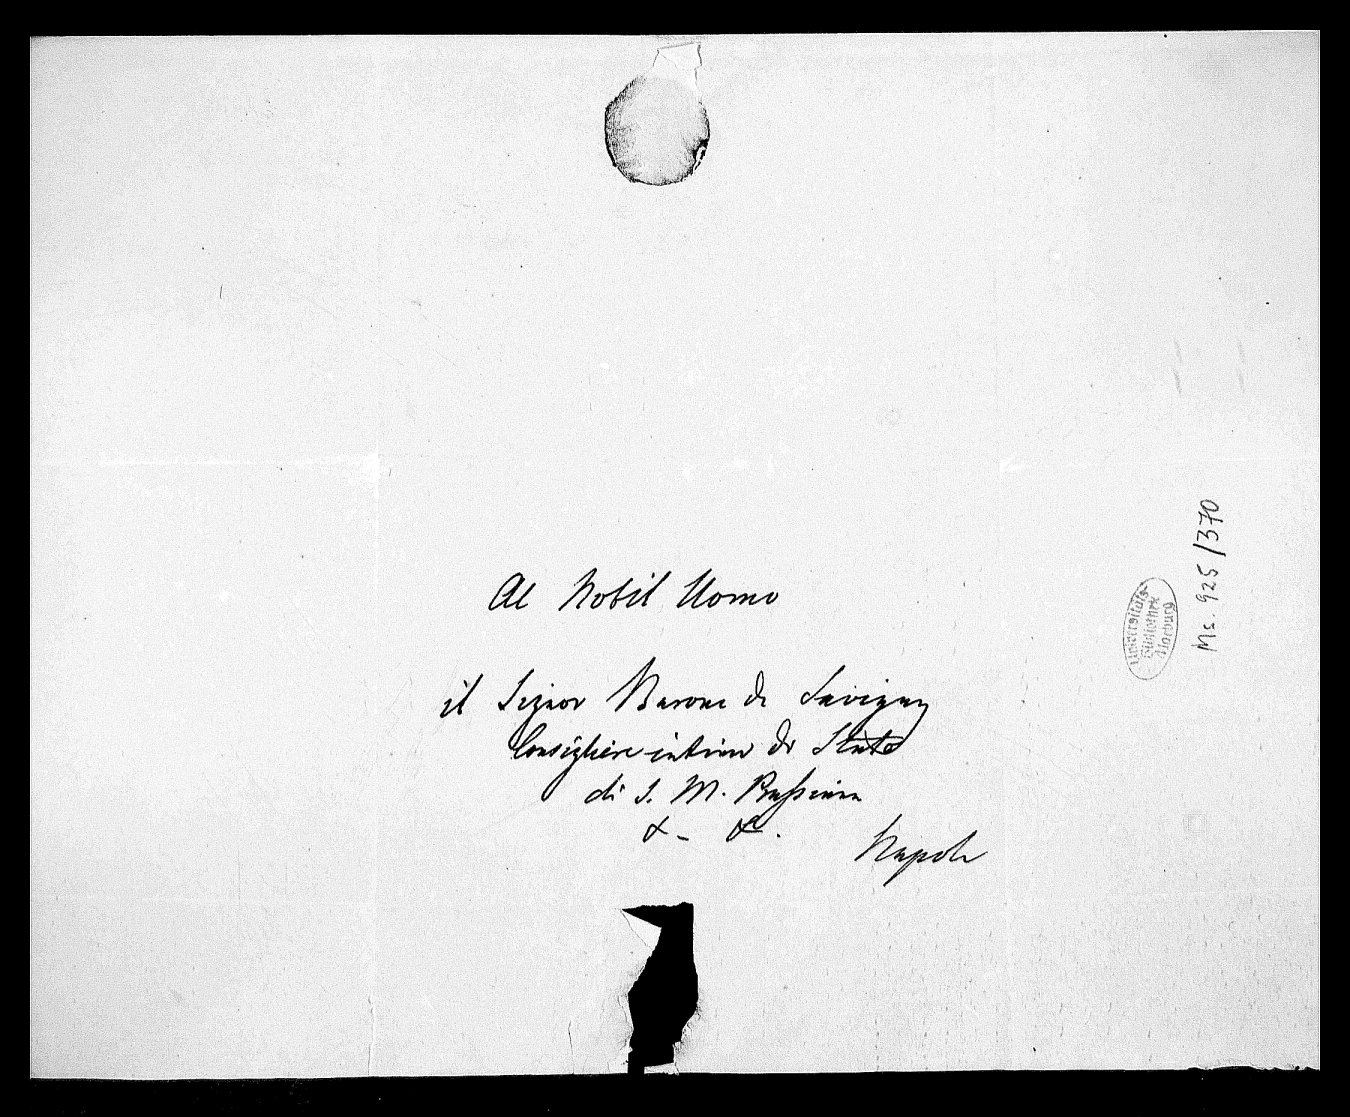 Al Nobil Uomo
il Signor Barone di Savigny
Consigliere intimo di Stato
di S. M. Prussiana
&- &.
Napoli
Universitäts-
Bibliothek
Marburg
Ms. 925/370